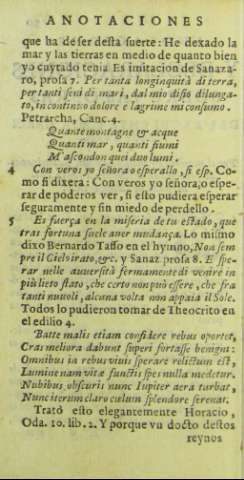 ANOTACIONES
que ha de ser desta suerte: He dexado la
mar y las tierras en medio de quanto bien
yo cuytado tenia Es imitacion de Sanaza-
ro, prosa 7. Per tanta longinquità di terra,
per tanti seni di mari, dal mio disio dilunga-
to, in continuo dolore e lagrime mi consumo.
Petrarcha, Canc. 4.
Quante montagne & acque
Quanti mar, quanti fiumi
M'ascondon quei duo lumi.
4 Con veros yo señora o esperallo, si esp. Co-
mo si dixera: Con veros yo señora, o espe-
rar de poderos ver, si esto pudiera esperar
seguramente y sin miedo de perdello.
5 Es fuerça en la miseria de tu estado, que
tras fortuna suele aner mudança. Lo mismo
dixo Bernardo Tasso en el hymno, Non sem
pre il Cielo irato, &c. y Sanaz prosa 8. E spe-
rar nelle auuersità fermamente di venire in
più lieto stato, che certo non può essere, che fra
tanti nuuoli, alcuna volta non appaia il Sole.
Todos lo pudieron tomar de Theocrito en
el edilio 4.
Batte malis etiam confidere rebus oportet,
Cras meliora dabunt superi fortasse benigni:
Omnibus in rebus viuis sperare relictum est,
Lumine nam vitæ functis spes nulla medetur.
Nubibus obscuris nunc Iupiter aera turbat,
Nunc iterum claro cælum splendore serenat.
Tratò esto elegantemente Horacio,
Oda. 10. lib. 2. Y porque vn docto destos
reynos